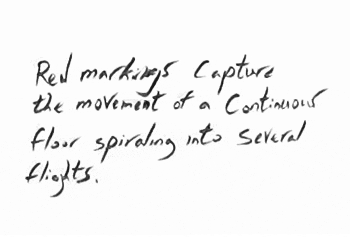 Red markings Capture
the movement of a Continuous
floor spiraling into Several
flights.